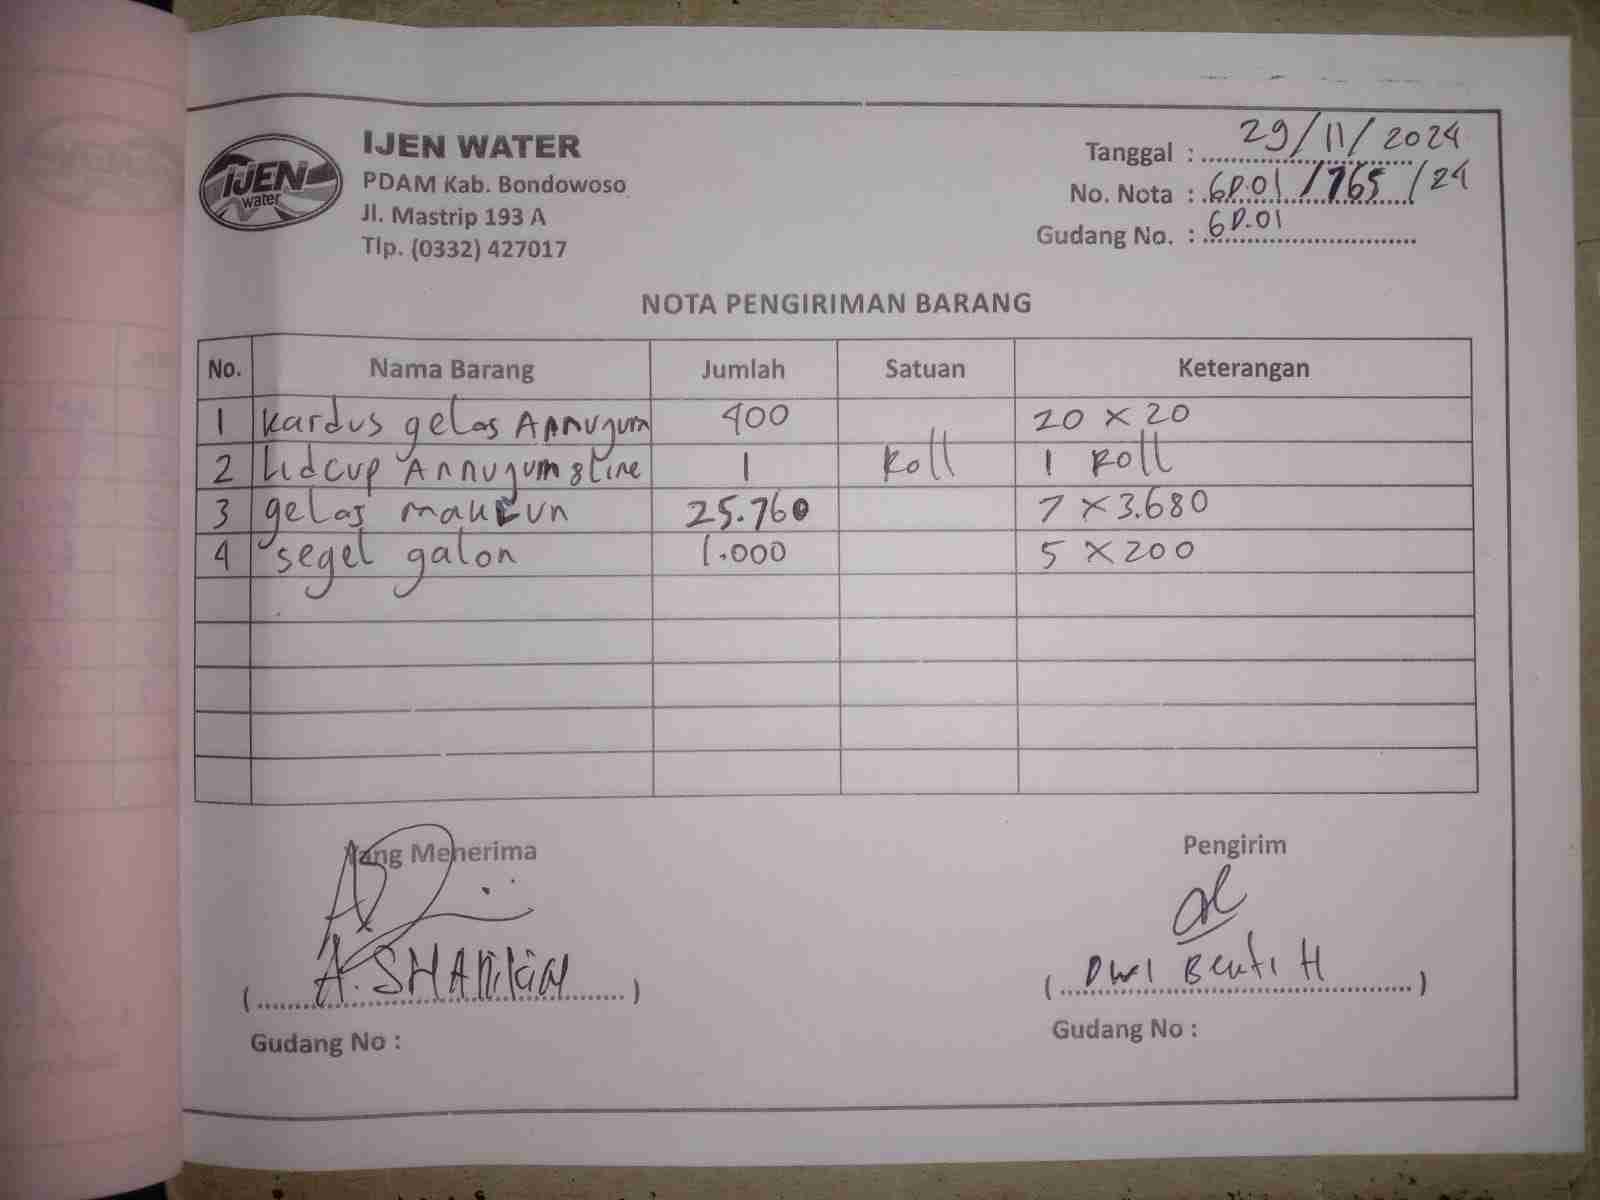 IJEN WATER
PDAM Kab. Bondowoso
Jl. Mastrip 193 A
Tlp. (0332) 427017
IJEN
water
Tanggal : 29/11/2024
No. Nota : GD.01/765/24
Gudang No. : GD.01
NOTA PENGIRIMAN BARANG
No. Nama Barang Jumlah Satuan Keterangan
1 kardus gelas Annuqum 400 20 x 20
2 Lidcup Annuqum 8 line 1 Roll 1 Roll
3 gelas 25.760 7 x 3.680
4 segel galon 1.000 5 x 200
Yang Menerima
A.
Gudang No :
Pengirim
(Dwi H)
Gudang No :